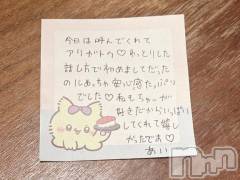 今日は呼んでくれて
アリガトの♡ゆっとりした
話し方で初めましてだった
のにめっちゃ安心感たっぷり
でした♡私もちゅーが
好きだからいっぱい
してくれて嬉し
かったです♡
あい